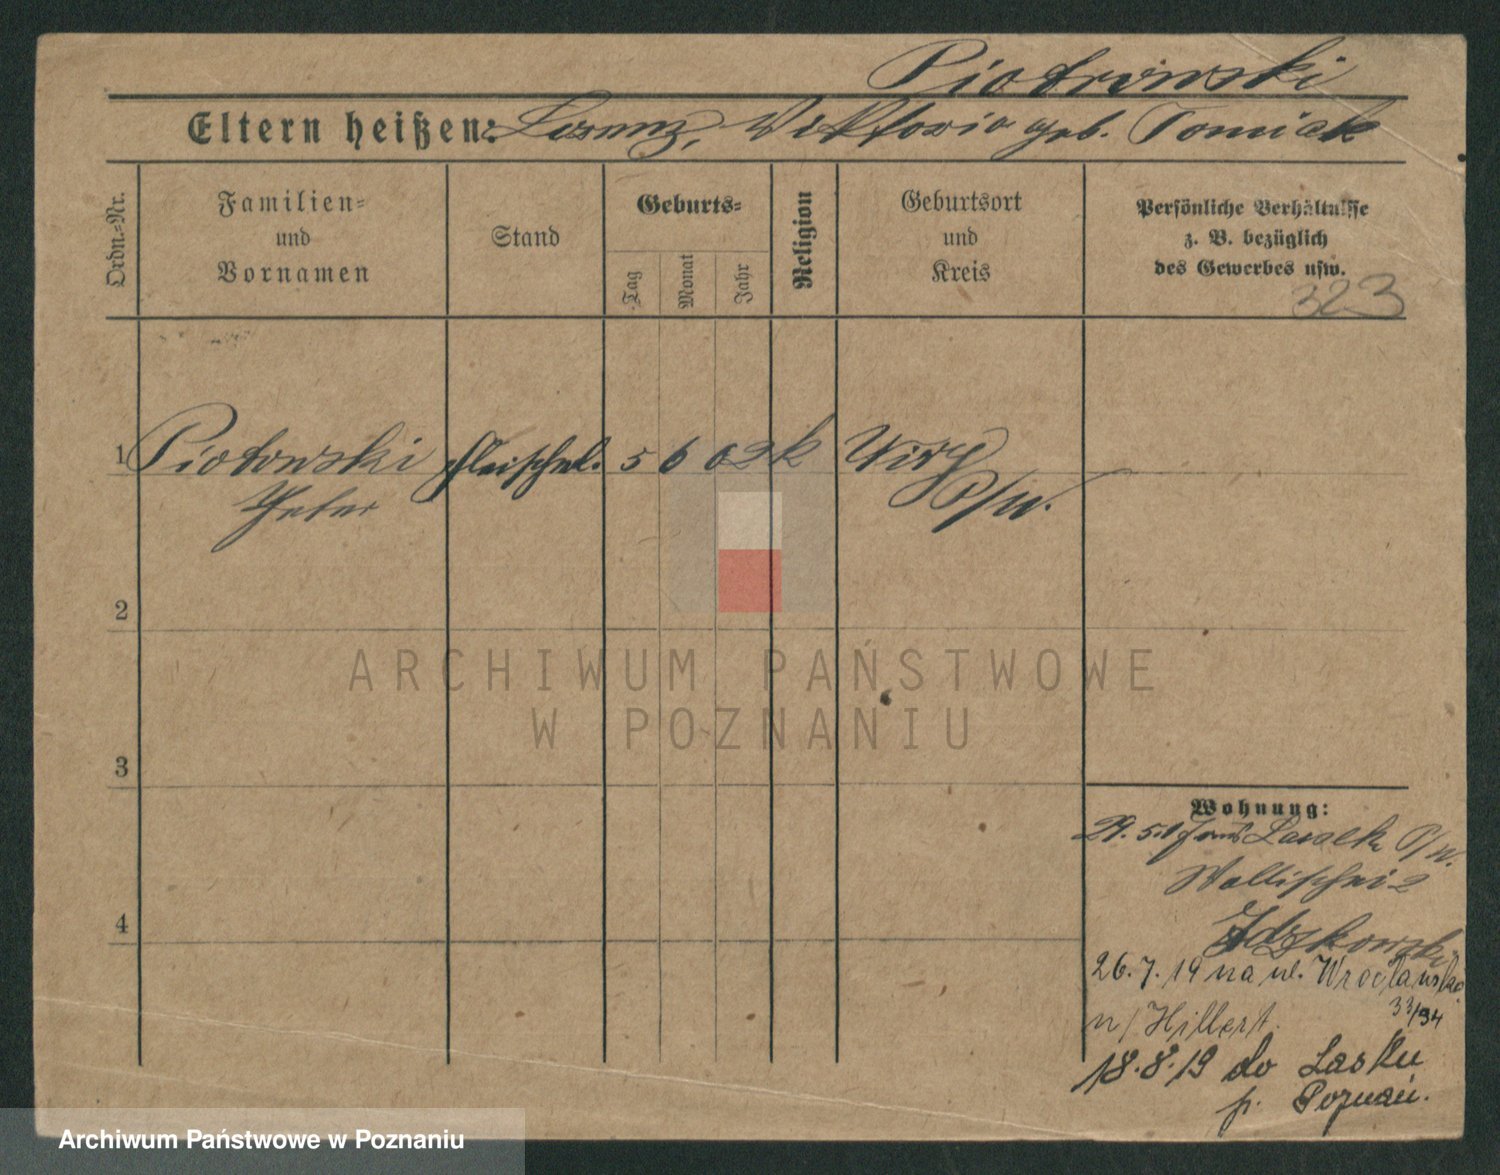 Piotrowski
Eltern heißen: Lorenz, Wiktoria geb. Tomiak
Ordn.=Nr.
Familien= und Vornamen
Stand
Geburts=
Tag
Monat
Jahr
Religion
Geburtsort und Kreis
Persönliche Verhältnisse
z. B. bezüglich
des Gewerbes usw.
323
1 Piotowski Fleischerl. 5 6 02 k Wiry
Peter P/W.
2
3
4
Wohnung:
29. 5. 19 Lasalk P/W.
Wallischei 2
Idzkowski
26. 7. 19 na ul. Wrocławską
33/34
n/ Hillert.
18. 8. 19 do Lasku
p. Poznań.
ARCHIWUM PAŃSTWOWE
W POZNANIU
Archiwum Państwowe w Poznaniu